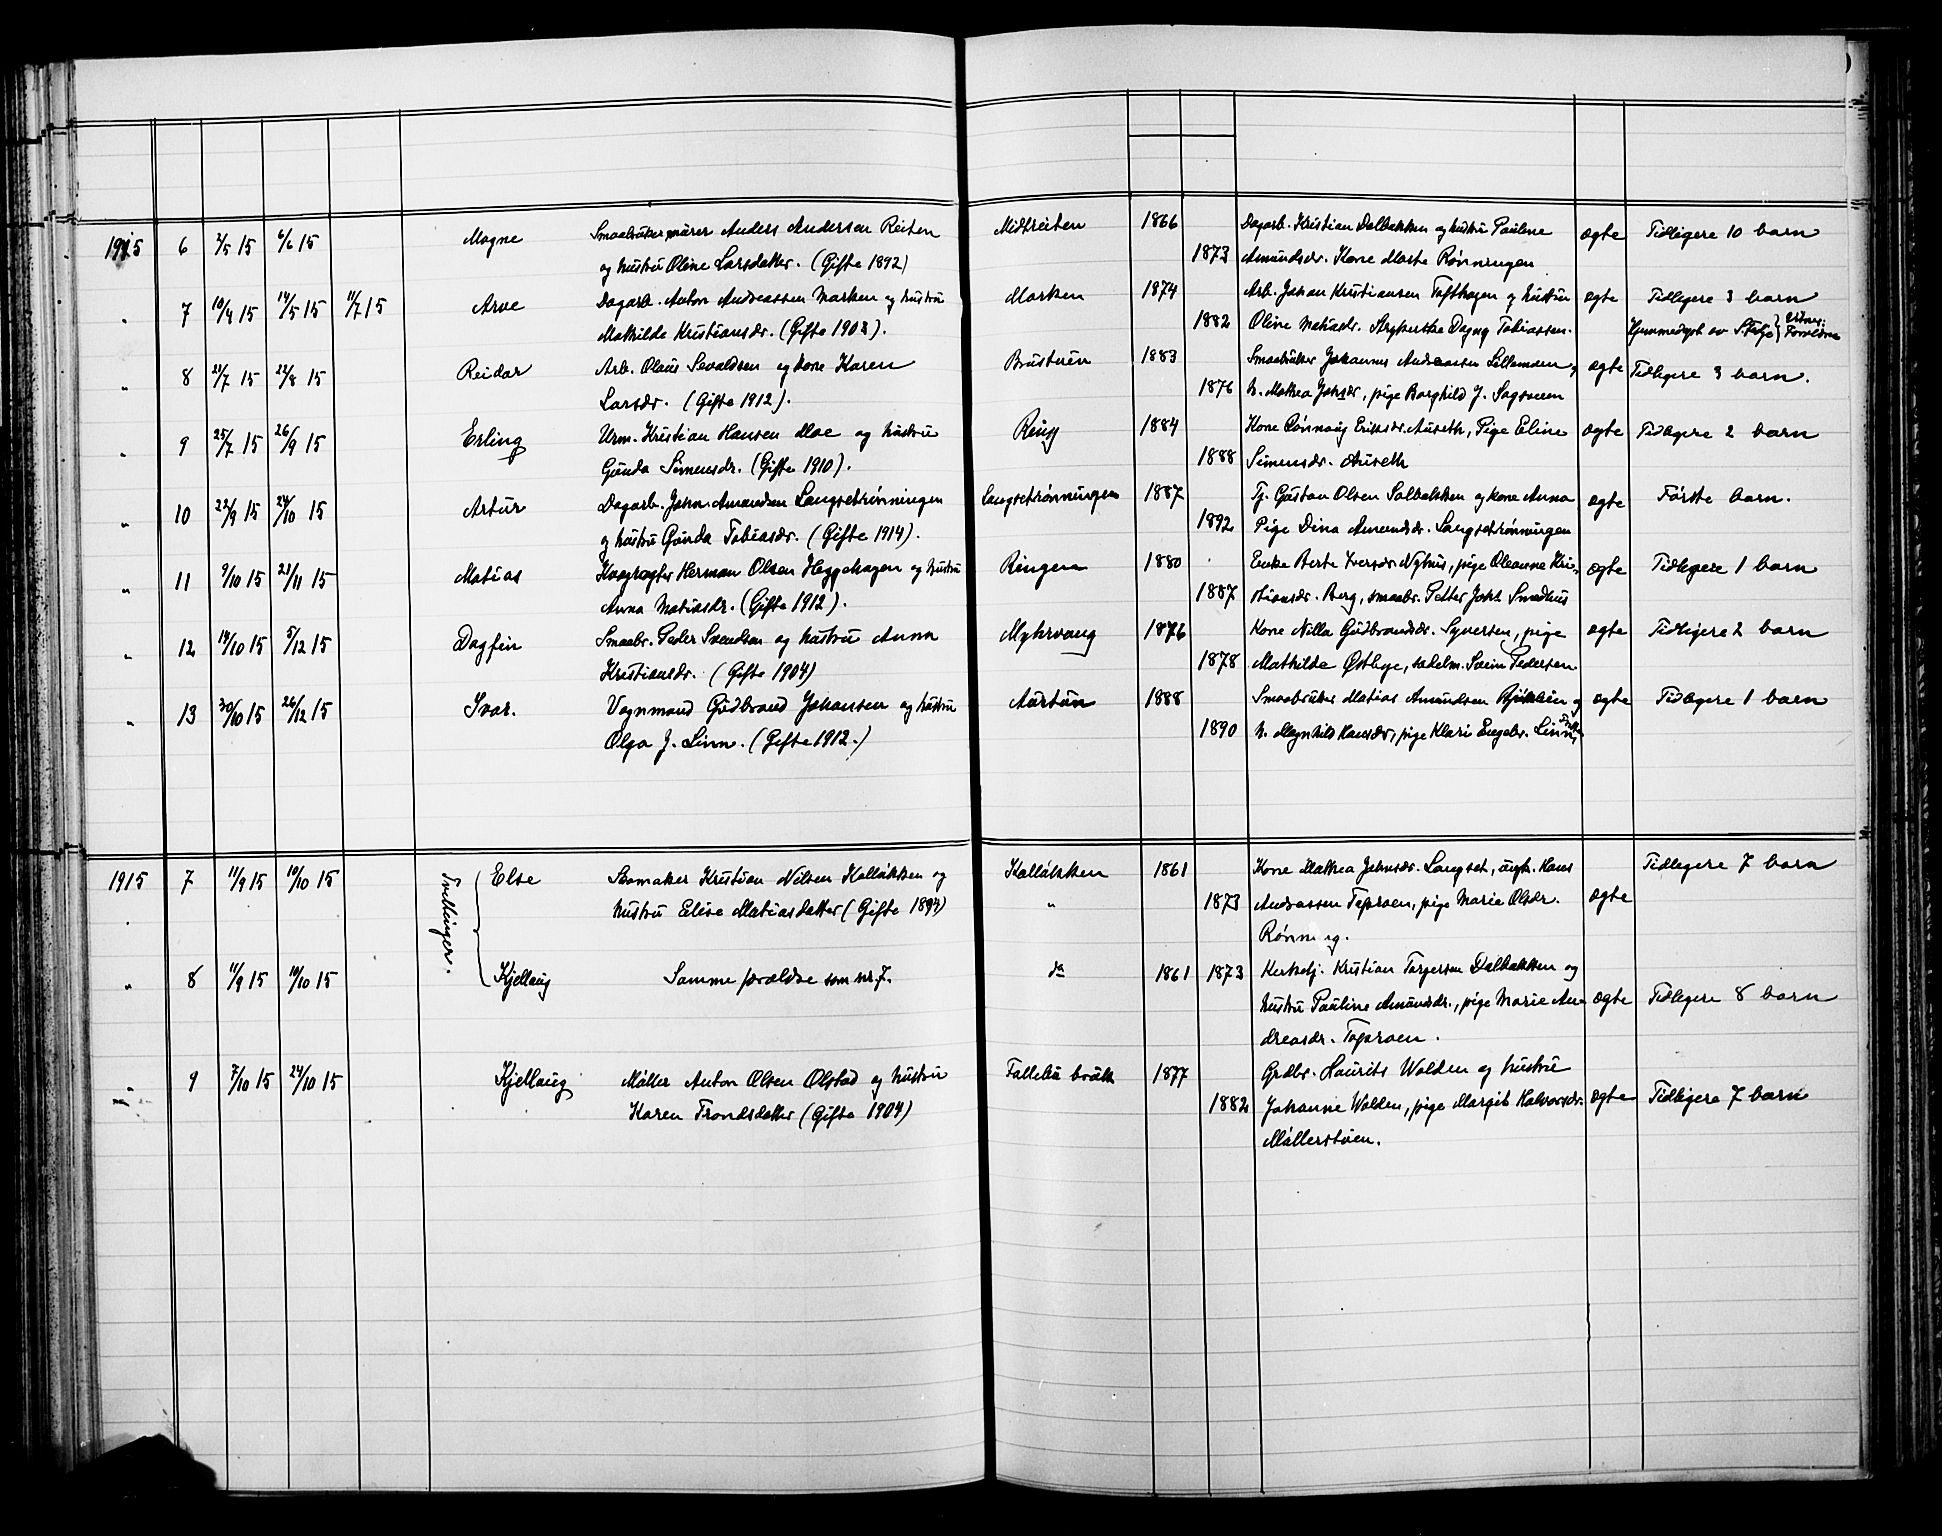 1915 6 2/5 15 6/6 15 Magne Smaabruker, murer Anders Andersen Reiten Midtreiten 1866 Dagarb. Kristian Dalbakken og hustru Pauline ægte Tidligere 10 barn
og hustru Oline Larsdatter. (Gifte 1892) 1873 Amundsdr. Kone Marte Rønningen
" 7 10/4 15 14/5 15 11/7 15 Arve Dagarb. Anton Andreassen Marken og hustru Marken 1874 Arb. Johan Kristiansen Tofthagen og hustru ægte Tidligere 3 barn
Mathilde Kristiansdr. (Gifte 1903). 1882 Oline Matiasdr. Strykerske Dagny Tobiassen. Hjemmedøpt av
" 8 21/7 15 22/8 15 Reidar Arb. Olaus Sevaldsen og kone Karen Brustuen 1883 Smaabruker Johannes Andreassen og ægte Tidligere 3 barn.
Larsdr. (Gifte 1912). 1876 h. Mathea Johsdr, pige Borghild J. Sagveen
" 9 25/7 15 26/9 15 Erling Urm. Kristian Hansen Moe og hustru Ring 1884 Kone Rønnaug Eriksdr. Auseth, Pige Eline ægte Tidligere 2 barn
Gunda Simensdr. (Gifte 1910). 1888 Simensdr. Auseth
" 10 22/9 15 24/10 15 Artur Dagarb. Johan Amundsen Langsetrønningen Langsetrønningen 1887 Tj. Gustav Olsen Solbakken og kone Anna ægte Første barn.
og hustru Gunda Tobiasdr. (Gifte 1914). 1892 Pige Dina Amundsdr. Langsetrønningen
" 11 9/10 15 21/11 15 Matias Herman Olsen Heggehagen og hustru Ringen 1880 Enke Berte Iversdr Nyhus, pige Oleanne Kri- ægte Tidligere 1 barn
Anna Matiasdr. (Gifte 1912). 1887 stiansdr. Berg, smaabr. Petter Johs. Smedhus
" 12 14/10 15 5/12 15 Dagfin Smaabr. Peder Svendsen og hustru Anna Myhrvang 1876 Kone Nilla Gudbrandsdr. Syversen, pige ægte Tidligere 2 barn
Kristiansdr. (Gifte 1904) 1878 Mathilde Østbye, sadelm. Svein Pedersen
" 13 30/10 15 26/12 15 Ivar. Vognmand Gudbrand Johansen og hustru Aurtun 1888 Smaabruker Matias Amundsen og ægte Tidligere 1 barn
Olga J. Linn. (Gifte 1912.) 1890 h. Magnhild Hansdr, pige Klari Engebr. Linn
1915 7 11/9 15 10/10 15 Tvillinger. Else Skomaker Kristian Nilsen Kollukken og Kollukken 1861 Kone Mathea Johnsdr. Langset, ungk. Hans Tidligere 7 barn
hustru Elise Matiasdatter (Gifte 1894) " 1873 Andreassen Toproen, pige Marie Olsdr. ægte
Rønning.
" 8 11/9 15 10/10 15 Kjellaug Samme forældre som nr. 7. do 1861 1873 Kirketj. Kristian Torgersen Dalbakken og
hustru Pauline Amundsdr., pige Marie An- ægte Tidligere 8 barn
dreasdr. Toproen.
" 9 7/10 15 24/10 15 Kjellaug Møller Anton Olsen Olstad og hustru Follebu bruk 1877 Grdbr. Laurits Wolden og hustru
Karen Trondsdatter (Gifte 1904) 1882 Johanne Wolden, pige Margit Halvorsdr. ægte Tidligere 7 barn
Møllerstuen.